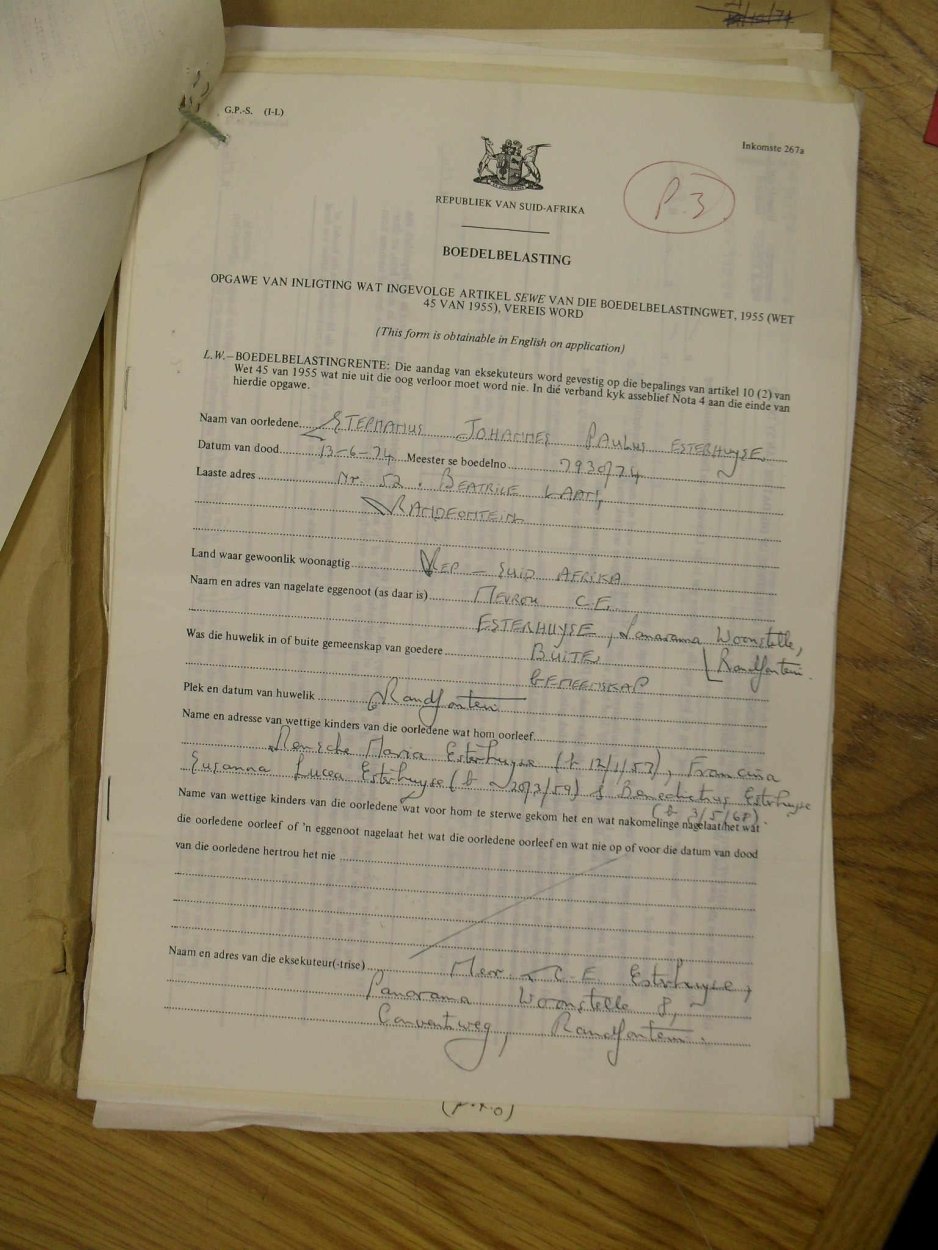 G.P.-S. (I-L)
Inkomste 267a
REPUBLIEK VAN SUID-AFRIKA
P.3
BOEDELBELASTING
OPGAWE VAN INLIGTING WAT INGEVOLGE ARTIKEL SEWE VAN DIE BOEDELBELASTINGWET, 1955 (WET
45 VAN 1955), VEREIS WORD
(This form is obtainable in English on application)
L.W.–BOEDELBELASTINGRENTE: Die aandag van eksekuteurs word gevestig op die bepalings van artikel 10 (2) van
Wet 45 van 1955 wat nie uit die oog verloor moet word nie. In dié verband kyk asseblief Nota 4 aan die einde van
hierdie opgawe.
Naam van oorledene STEPHANUS JOHANNES PAULUS ESTERHUYSE
Datum van dood 13-6-74 Meester se boedelno. 7930/74
Laaste adres Nr. 52, BEATRICE LAAN,
RANDFONTEIN
Land waar gewoonlik woonagtig REP - SUID AFRIKA
Naam en adres van nagelate eggenoot (as daar is) MEVROU C.E.
ESTERHUYSE, Panorama Woonstelle,
Was die huwelik in of buite gemeenskap van goedere BUITE Randfontein.
GEMEENSKAP
Plek en datum van huwelik Randfontein
Name en adresse van wettige kinders van die oorledene wat hom oorleef
Maria Esterhuyse (b 12/1/57), Francina
Susanna Lucea Esterhuyse (b 20/3/59) & Benedictus Esterhuyse
(b 3/5/68).
Name van wettige kinders van die oorledene wat voor hom te sterwe gekom het en wat nakomelinge nagelaat het wat
die oorledene oorleef of 'n eggenoot nagelaat het wat die oorledene oorleef en wat nie op of voor die datum van dood
van die oorledene hertrou het nie
Naam en adres van die eksekuteur(-trise) Mev C.E. Esterhuyse,
Panorama Woonstelle 8,
Conventweg, Randfontein.
(P.T.O)